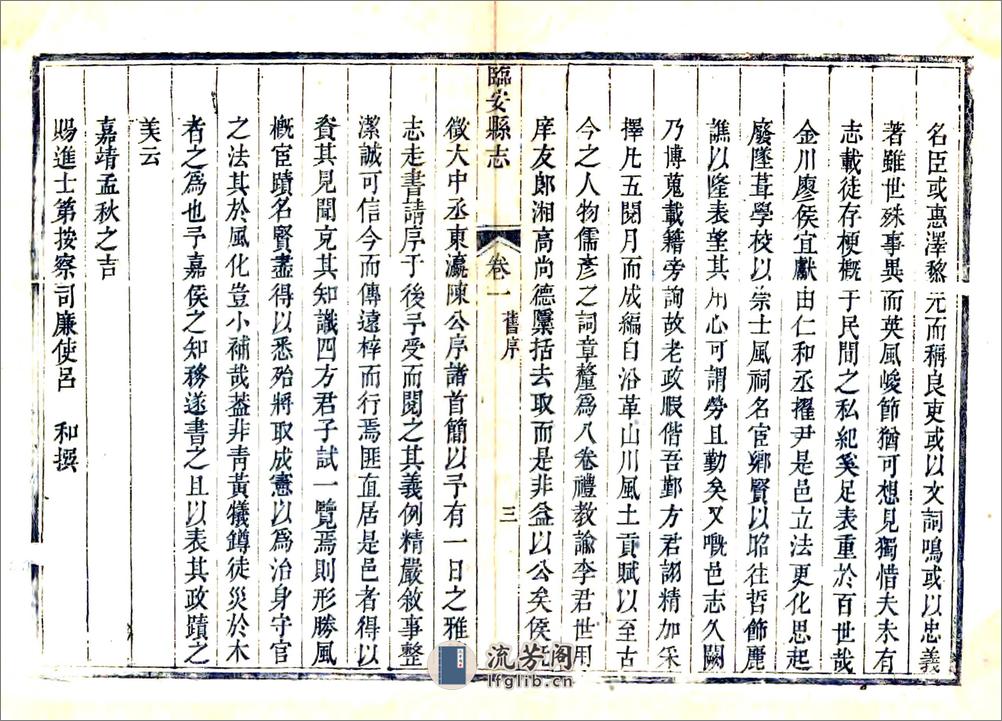 名臣或惠澤黎元而稱良吏或以文詞鳴或以忠義
著雖世殊事異而英風峻節猶可想見獨惜夫未有
志載徒存梗概于民間之私紀奚足表重於百世哉
金川廖侯宜獻由仁和丞擢尹是邑立法更化思起
廢墜葺學校以崇士風祠名宦鄉賢以昭往哲飾麗
譙以隆表望其用心可謂勞且勤矣又嘅邑志久闕
乃博蒐載籍旁詢故老政暇偕吾鄞方君認精加采
擇凡五閱月而成編自沿革山川風土貢賦以至古
今之人物儒彥之詞章釐爲八卷禮教諭李君世用
庠友郎湘高尚德檃括去取而是非益以公矣侯
臨安縣志
卷一
舊序
三
徵大中丞東瀛陳公序諸首簡以予有一日之雅
志走書請序于後予受而閱之其義例精嚴敘事整
潔誠可信今而傳遠梓而行焉匪直居是邑者得以
資其見聞克其知識四方君子試一覽焉則形勝風
概宦蹟名賢盡得以悉殆將取成憲以爲治身守官
之法其於風化豈小補哉葢非青黃犧罇徒災於木
者之爲也予嘉侯之知務遂書之且以表其政蹟之
美云
嘉靖孟秋之吉
賜進士第按察司廉使呂 和撰
流芳阁
lfglib.cn